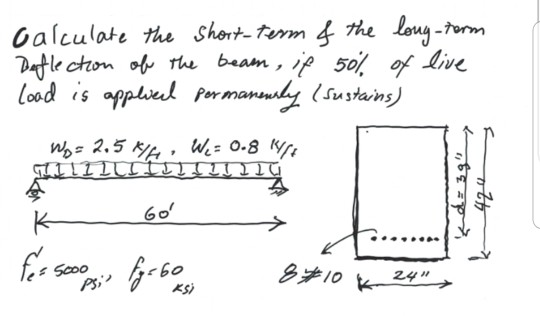 Calculate the Short-term & the long-term
Deflection of the beam, if 50% of live
load is applied permanently (Sustains)
W_D = 2.5 K/ft, W_L = 0.8 K/ft
60'
f'c = 5000 psi, fy = 60 ksi
8 #10
24"
d = 39"
42"